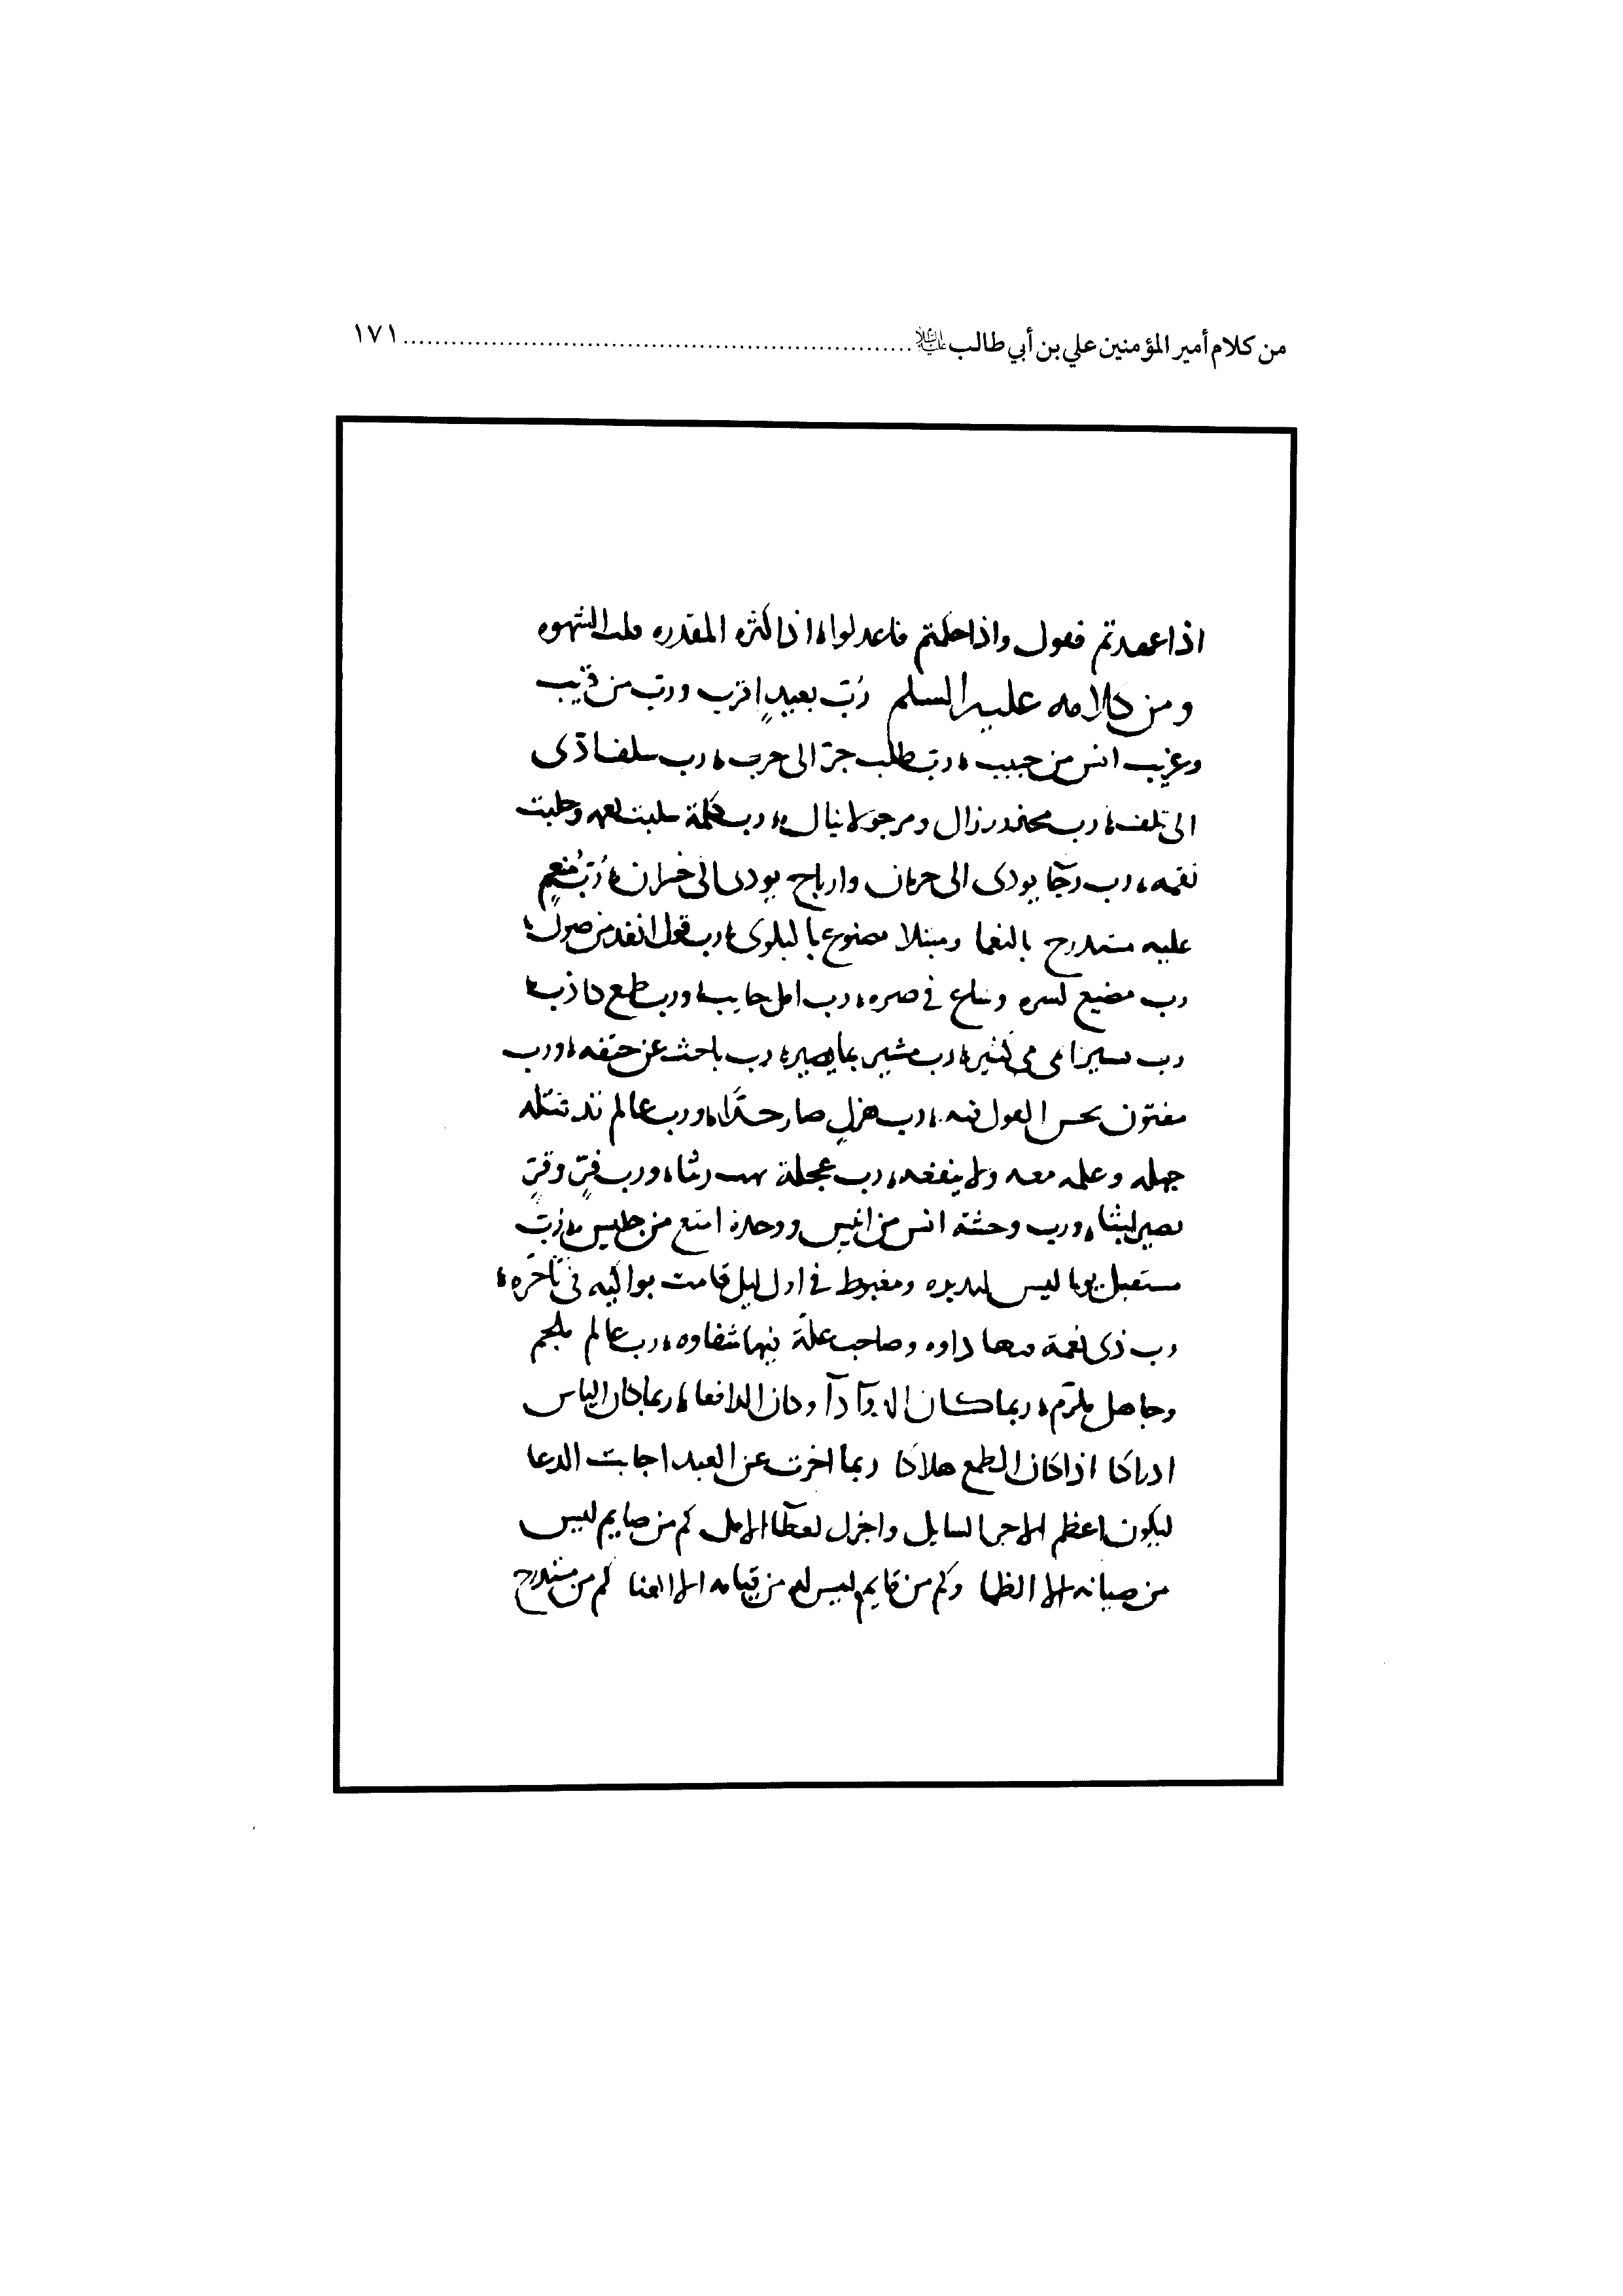 من كلام أمير المؤمنين علي بن أبي طالب عليه السلام ........ ١٧١
اذا فعول واذا حكمتم فاعدلوا، اذا كثره المقدره قلت الشهوه
ومن كلامه عليه السلم رُبّ بعيدٍ اقرب ورب من قريب
وغريب انس من حبيب، رب طلب جرّ الى حرب، رب سلف ادّى
الى تلف، رب محذور زال ومرجو لا ينال، رب كلمة سلبت نعمه وجلبت
نقمه، رب رجآ يودى الى حرمان وارباح يودى الى خسران، رُبّ مُنعمٍ
عليه مستدرج بالنعما ومبتلا مصنوع بالبلوى، رب قول انفد من صول،
رب مضيع لسره وساع فى ضره، رب امل خايب، ورب طمع كاذب،
رب يسير انمى من كثير، رب مشير بما يضير، رب باحث عن حتفه، ورب
مفتون بحسن القول فيه، رب هزلٍ صار جدًّا، ورب عالم قد قتله
جهله وعلمه معه ولا ينفعه، رب عجلة تهب رثيا، ورب
يصير ليثا، ورب وحشة انس من انيس ووحدة امتع من جليس، رُبّ
مستقبل يوما ليس بمستدبره ومغبوط فى اول ليل قامت بواكيه فى آخره،
رب ذى نعمة منها داوه وصاحب علّة فيها شفاوه، رب عالم ملجم
وجاهل مكرّم، ربما كان الدوآ دآ وكان الدا نفعا، ربما كان الياس
ادراكا اذا كان الطمع هلاكا ربما اخرت عن العبد اجابت الدعا
ليكون اعظم لاجر السايل واجزل لعطآ الامل كم من صايم ليس
من صيامه الا الظما وكم من قايم ليس له من قيامه الا العنا كم من مستدرج